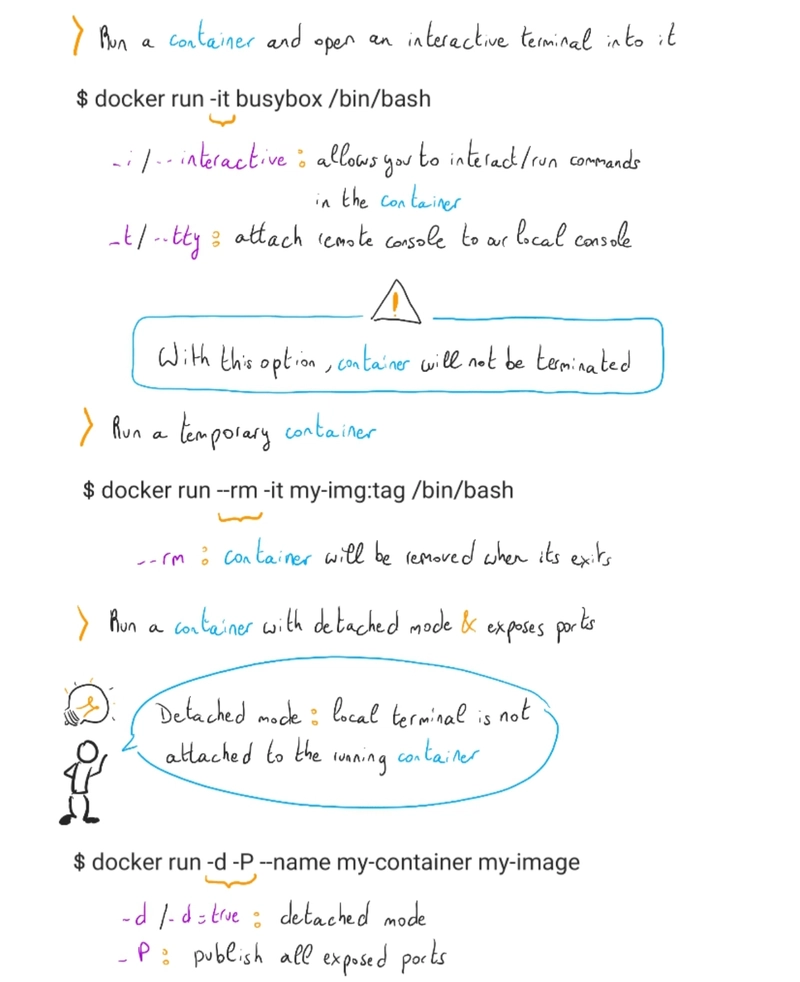 > Run a container and open an interactive terminal into it
$ docker run -it busybox /bin/bash
-i / --interactive : allows you to interact/run commands
in the container
-t / --tty : attach remote console to our local console
!
With this option, container will not be terminated
> Run a temporary container
$ docker run --rm -it my-img:tag /bin/bash
--rm : container will be removed when its exits
> Run a container with detached mode & exposes ports
Detached mode : local terminal is not
attached to the running container
$ docker run -d -P --name my-container my-image
-d / -d=true : detached mode
-P : publish all exposed ports